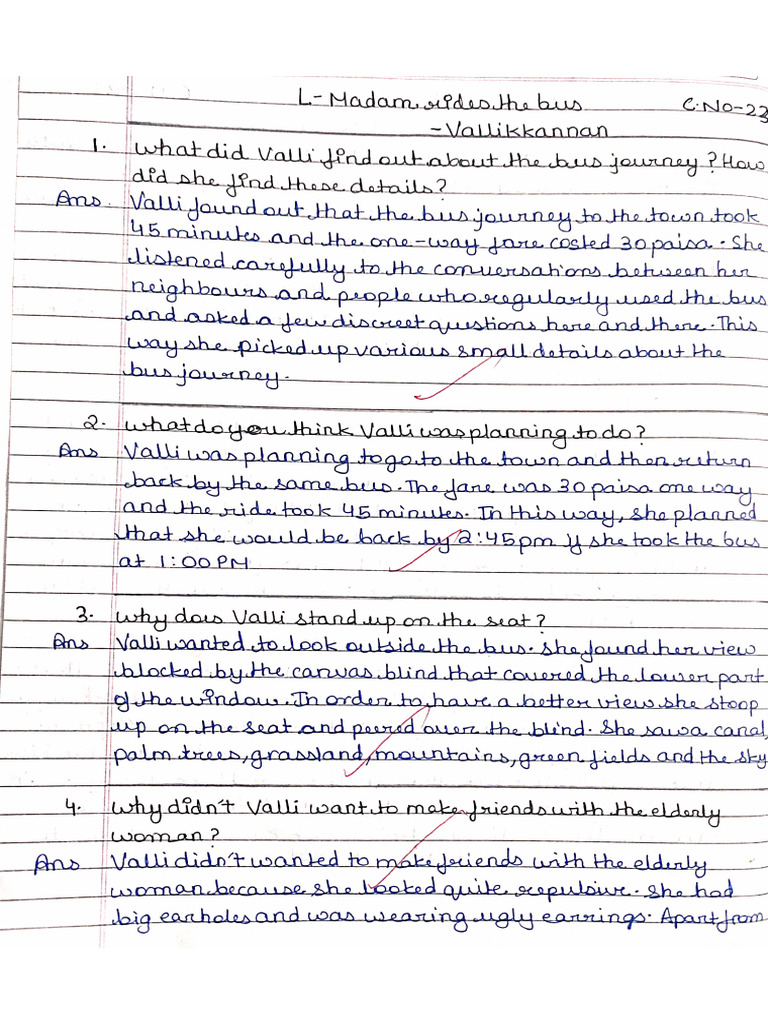 L- Madam rides the bus C.No-23
-Vallikkannan
1. What did Valli find out about the bus journey? How
did she find these details?
Ans. Valli found out that the bus journey to the town took
45 minutes and the one-way fare costed 30 paisa. She
listened carefully to the conversations between her
neighbours and people who regularly used the bus
and asked a few discreet questions here and there. This
way she picked up various small details about the
bus journey.
2. What do you think Valli was planning to do?
Ans Valli was planning to go to the town and then return
back by the same bus. The fare was 30 paisa one way
and the ride took 45 minutes. In this way, she planned
that she would be back by 2:45pm if she took the bus
at 1:00PM
3. Why does Valli stand up on the seat?
Ans Valli wanted to look outside the bus. She found her view
blocked by the canvas blind that covered the lower part
of the window. In order to have a better view she stoop
up on the seat and peered over the blind. She saw a canal,
palm trees, grassland, mountains, green fields and the sky
4. Why didn't Valli want to make friends with the elderly
woman?
Ans Valli didn't wanted to make friends with the elderly
woman because she looked quite repulsive. She had
big earholes and was wearing ugly earrings. Apart from